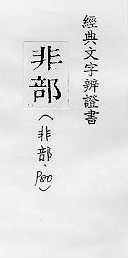 經典文字辨證書
非部
(非部、P80)